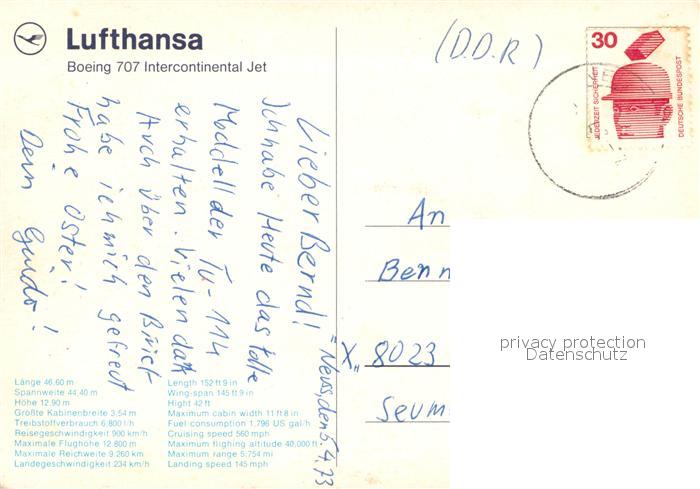 Lufthansa
Boeing 707 Intercontinental Jet
(D.D.R)
30
JEDERZEIT SICHERHEIT
DEUTSCHE BUNDESPOST
Lieber Bernd!
Ich habe Heute das tolle
Modell der Tu-114
erhalten. Vielen dank
Auch über den Brief
habe ich mich gefreut
Frohe Oster!
Dein Guido!
Neuss, den 5.4.73
An
Bern
X„ 8023
Seum
privacy protection
Datenschutz
Länge 46.60 m
Spannweite 44,40 m
Höhe 12.90 m
Größte Kabinenbreite 3.54 m
Treibstoffverbrauch 6.800 l/h
Reisegeschwindigkeit 900 km/h
Maximale Flughöhe 12.800 m
Maximale Reichweite 9.260 km
Landegeschwindigkeit 234 km/h
Length 152 ft 9 in
Wing-span 145 ft 9 in
Hight 42 ft
Maximum cabin width 11 ft 8 in
Fuel consumption 1,796 US gal/h
Cruising speed 560 mph
Maximum flighing altitude 40,000 ft
Maximum range 5,754 mi
Landing speed 145 mph